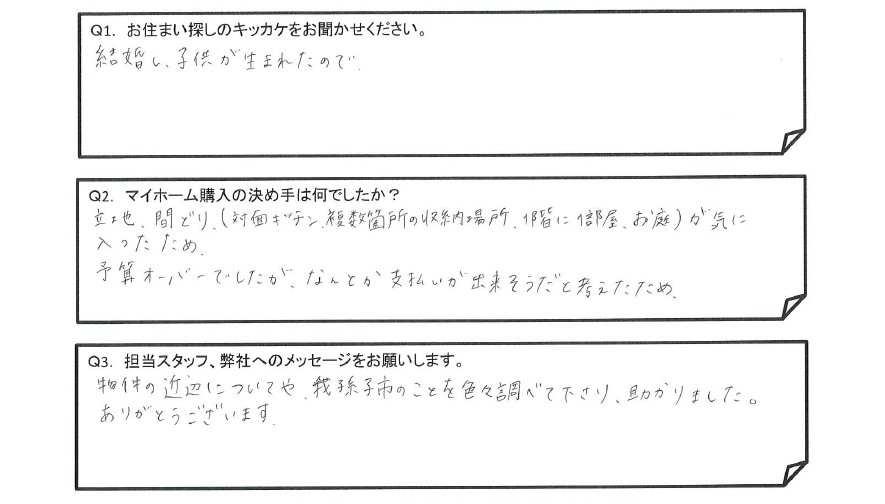 Q1. お住まい探しのキッカケをお聞かせください。
結婚し、子供が生まれたので.
Q2. マイホーム購入の決め手は何でしたか？
立地、間どり、(対面キッチン、複数箇所の収納場所、1階に1部屋、お庭)が気に
入ったため.
予算オーバーでしたが、なんとか支払いが出来そうだと考えたため.
Q3. 担当スタッフ、弊社へのメッセージをお願いします。
物件の近辺についてや、我孫子市のことを色々調べて下さり、助かりました。
ありがとうございます.